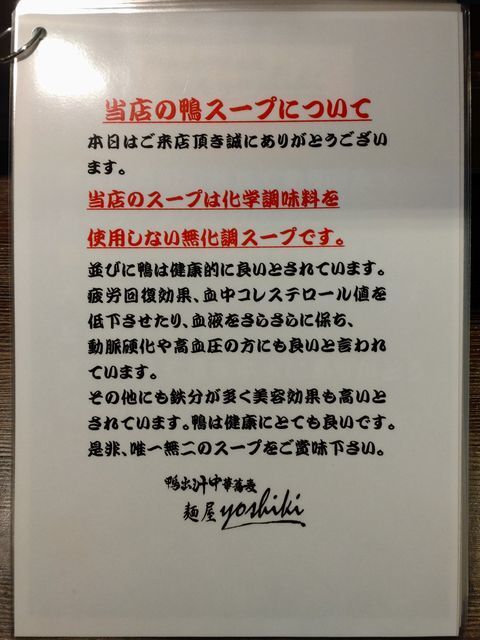 当店の鴨スープについて
本日はご来店頂き誠にありがとうござい
ます。
当店のスープは化学調味料を
使用しない無化調スープです。
並びに鴨は健康的に良いとされています。
疲労回復効果、血中コレステロール値を
低下させたり、血液をさらさらに保ち、
動脈硬化や高血圧の方にも良いと言われ
ています。
その他にも鉄分が多く美容効果も高いと
されています。鴨は健康にとても良いです。
是非、唯一無二のスープをご賞味下さい。
鴨出汁中華蕎麦
麺屋yoshiki